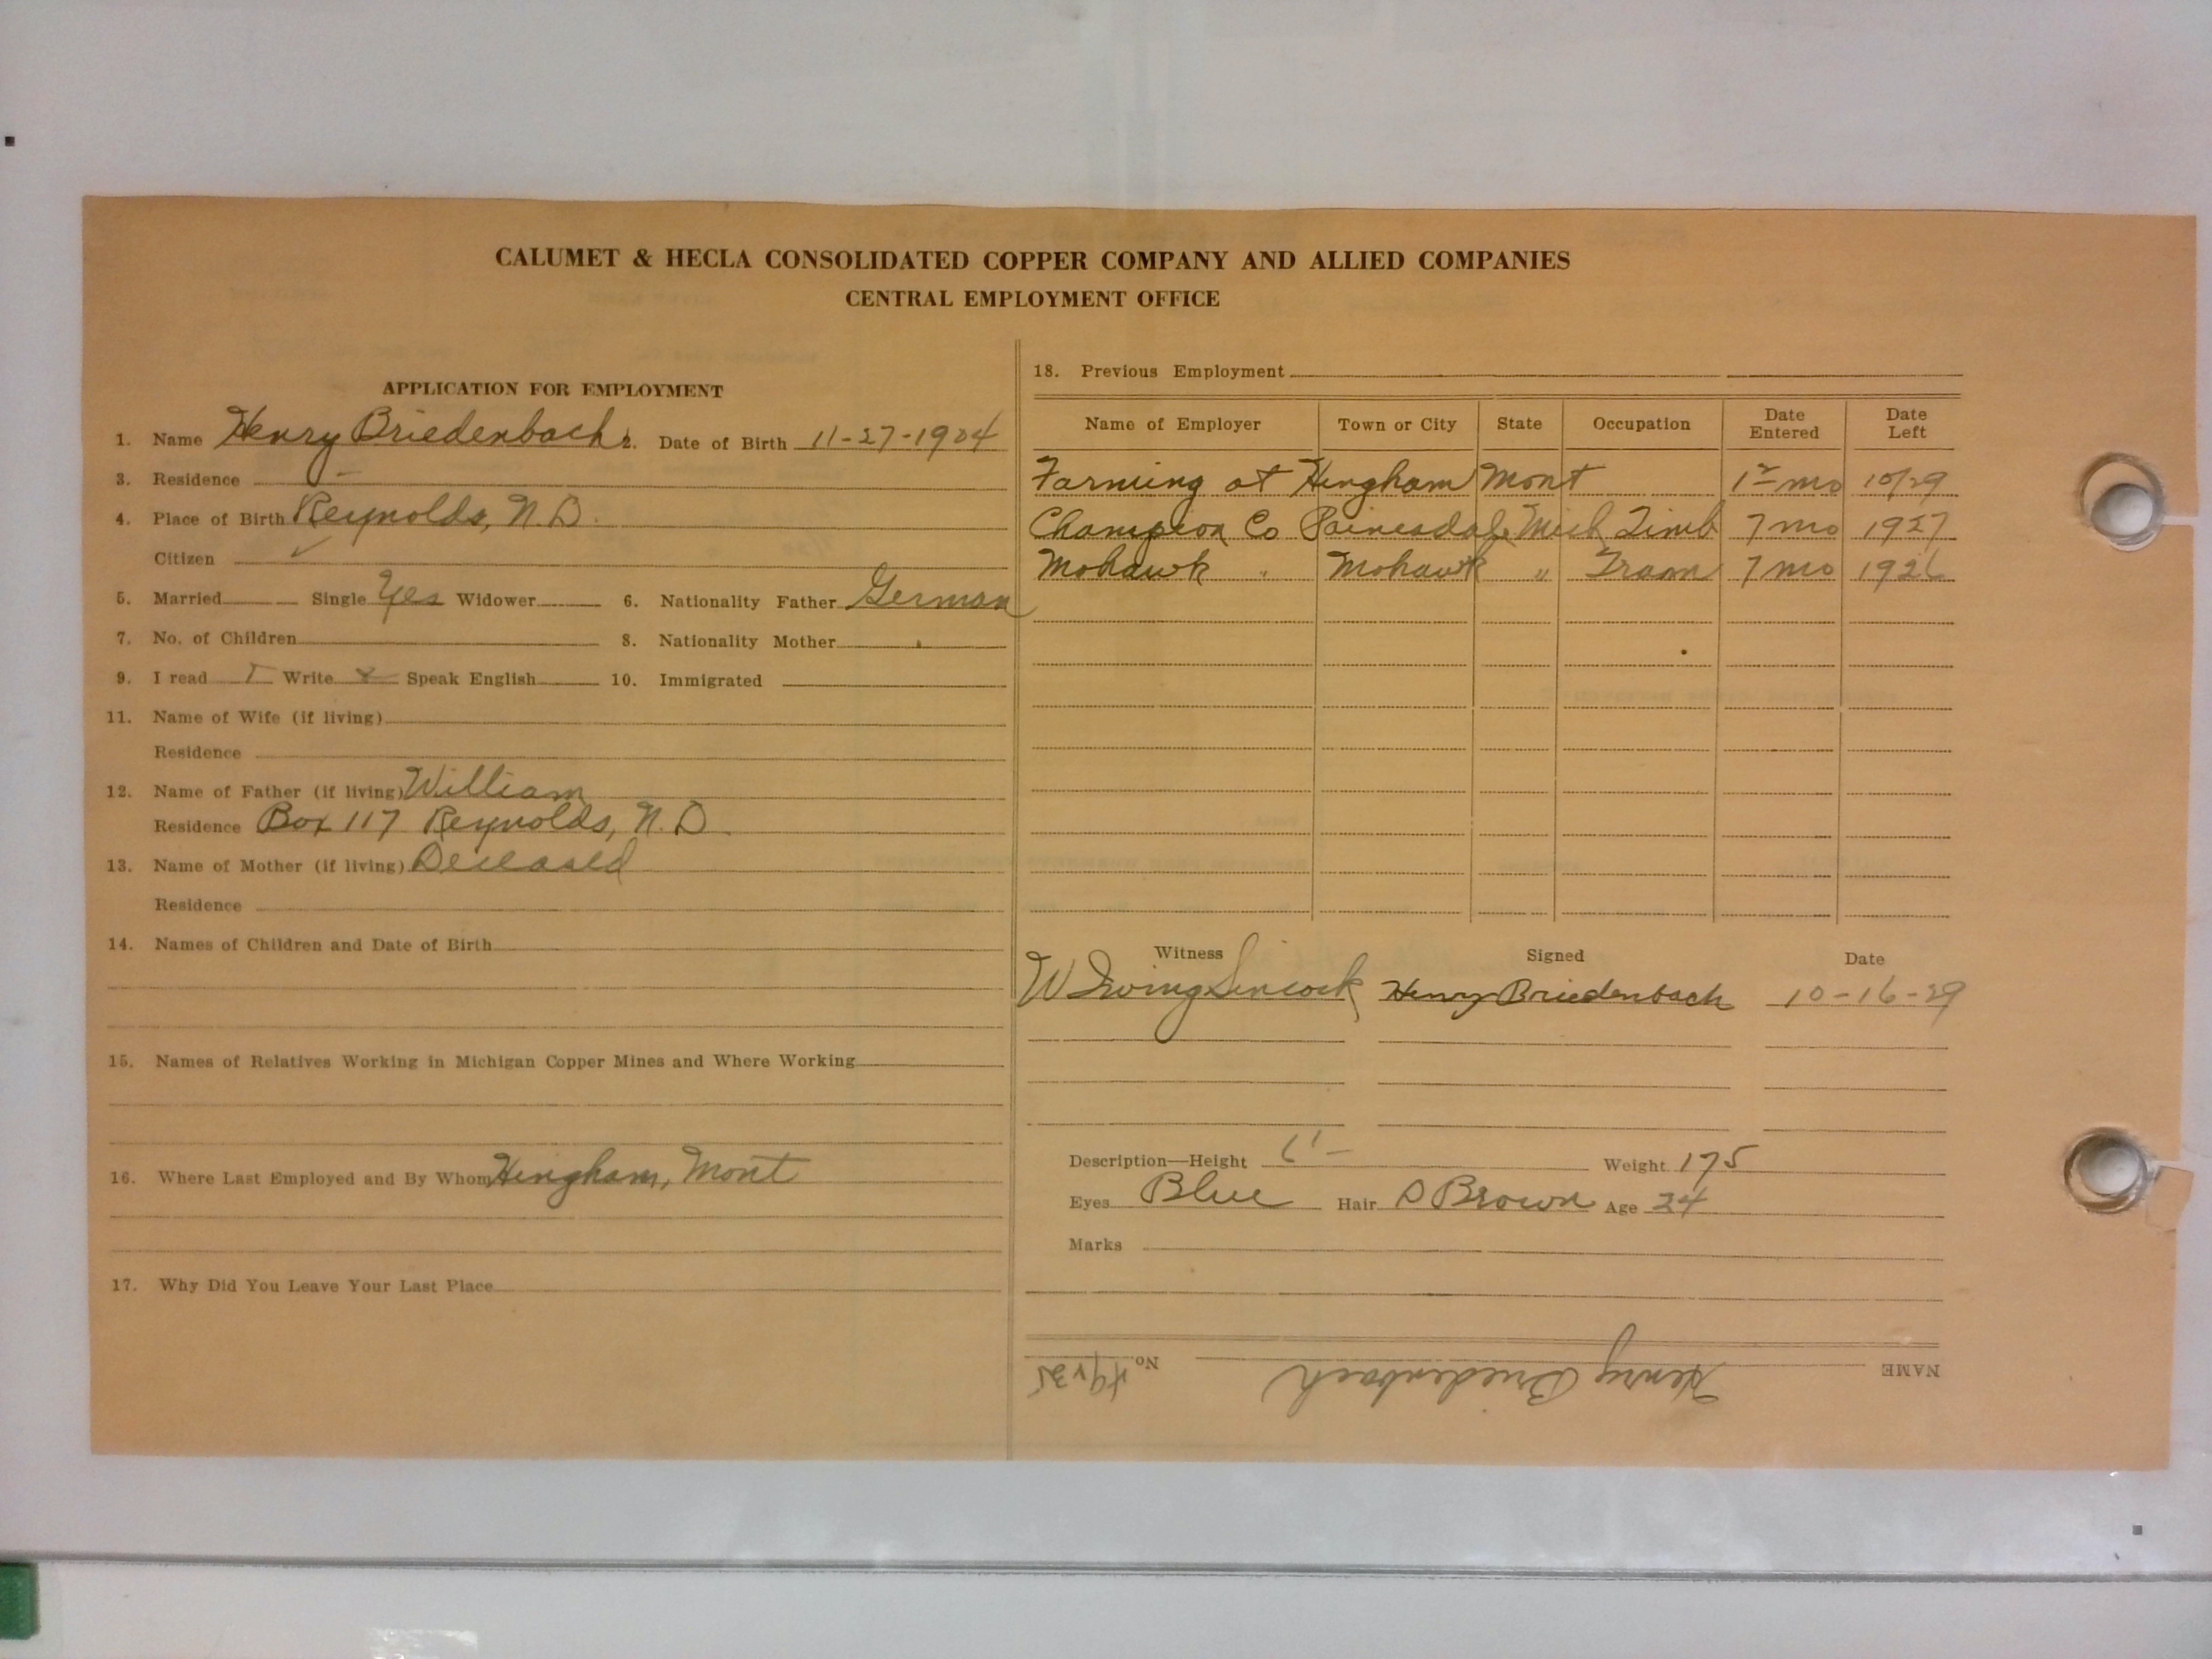 CALUMET & HECLA CONSOLIDATED COPPER COMPANY AND ALLIED COMPANIES
CENTRAL EMPLOYMENT OFFICE
APPLICATION FOR EMPLOYMENT
1. Name Henry Briedenbach 2. Date of Birth 11-27-1904
3. Residence
4. Place of Birth Reynolds, N.D.
Citizen ✓
5. Married Single Yes Widower 6. Nationality Father German
7. No. of Children 8. Nationality Mother "
9. I read Write Speak English 10. Immigrated
11. Name of Wife (if living)
Residence
12. Name of Father (if living) William
Residence Box 117 Reynolds, N.D.
13. Name of Mother (if living) Deceased
Residence
14. Names of Children and Date of Birth
15. Names of Relatives Working in Michigan Copper Mines and Where Working
16. Where Last Employed and By Whom Hingham, Mont
17. Why Did You Leave Your Last Place
18. Previous Employment
Name of Employer Town or City State Occupation Date Entered Date Left
Farming at Hingham Mont mo 10/29
Champion Co Painesdale Mich Timb 7 mo 1927
Mohawk " Mohawk " Tram 7 mo 1926
Witness Signed Date
W Irving Lincock Henry Briedenbach 10-16-29
Description—Height 6'- Weight 175
Eyes Blue Hair D Brown Age 24
Marks
NAME Henry Briedenbach No.